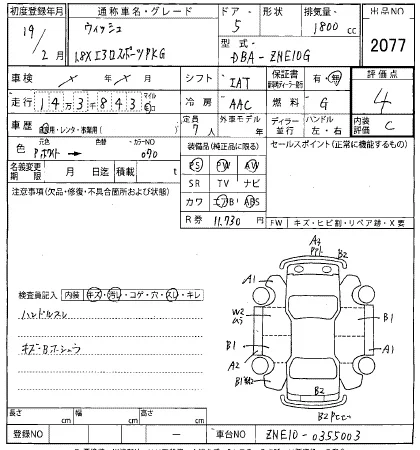 初度登録年月 通称車名・グレード ドア 形状 排気量 出品NO
19/2月 ウィッシュ 5 1800cc
1.8X エアロスポーツPKG 型式 DBA-ZNE10G 2077
車検 シフト IAT 保証書 有・無 評価点
走行 14万3千843 マイル km 冷房 AAC 燃料 G 4
車歴 自家用・レンタ・事業用( ) 定員 7人 外車モデル年 年 ディーラー 並行 ハンドル 左・右 内装評価 C
色 元色 Pホワイト 色替 カラーNO 070 装備品(純正品に限る) セールスポイント(正常に機能するもの)
名義変更期限 月 日迄 積載 t PS PW AW
注意事項(欠品・修復・不具合箇所および状態) SR TV ナビ
カワ エアB ABS
R券 11,730
FW キズ・ヒビ割・リペア跡・X要
A4
PP1
B2
A1
A1
W2
B1
B1
A1
A2
B2
B2 Pにつ
検査員記入 内装 キズ・汚れ・コゲ・穴・スレ・キレ
ハンドルスレ
長さ cm 幅 cm 高さ cm
登録NO ー 車台NO ZNE10-0355003